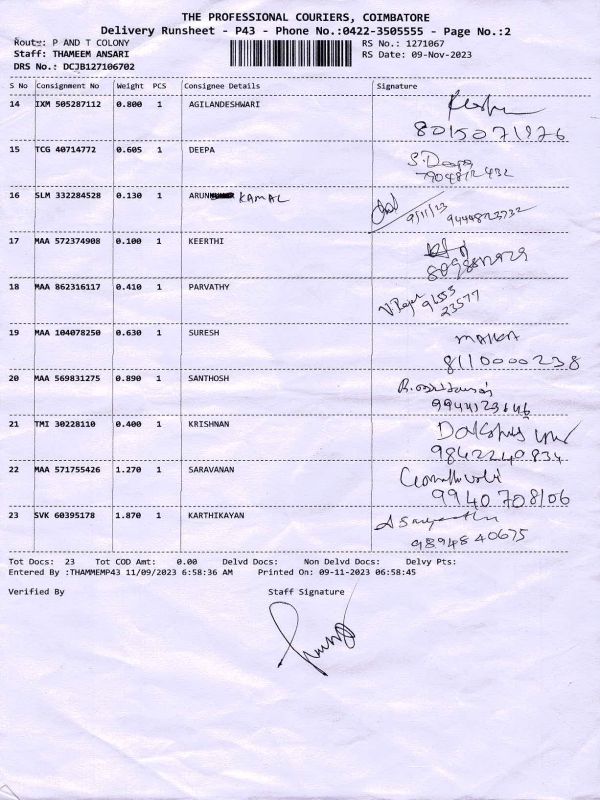 THE PROFESSIONAL COURIERS, COIMBATORE
Delivery Runsheet - P43 - Phone No.:0422-3505555 - Page No.:2
Route: P AND T COLONY RS No.: 1271067
Staff: THAMEEM ANSARI RS Date: 09-Nov-2023
DRS No.: DCJB127106702
S No Consignment No Weight PCS Consignee Details Signature
14 IXM 505287112 0.800 1 AGILANDESHWARI
8015071876
15 TCG 40714772 0.605 1 DEEPA S.Deepa
7904812432
16 SLM 332284528 0.130 1 ARUN KAMAL
9/11/23 9444823732
17 MAA 572374908 0.100 1 KEERTHI
18 MAA 862316117 0.410 1 PARVATHY
96553
23577
19 MAA 104078250 0.630 1 SURESH
8110000238
20 MAA 569831275 0.890 1 SANTHOSH
9944123646
21 TMI 30228110 0.400 1 KRISHNAN
9842240834
22 MAA 571755426 1.270 1 SARAVANAN
9940708106
23 SVK 60395178 1.870 1 KARTHIKAYAN
9894840675
Tot Docs: 23 Tot COD Amt: 0.00 Delvd Docs: Non Delvd Docs: Delvy Pts:
Entered By :THAMMEMP43 11/09/2023 6:58:36 AM Printed On: 09-11-2023 06:58:45
Verified By Staff Signature